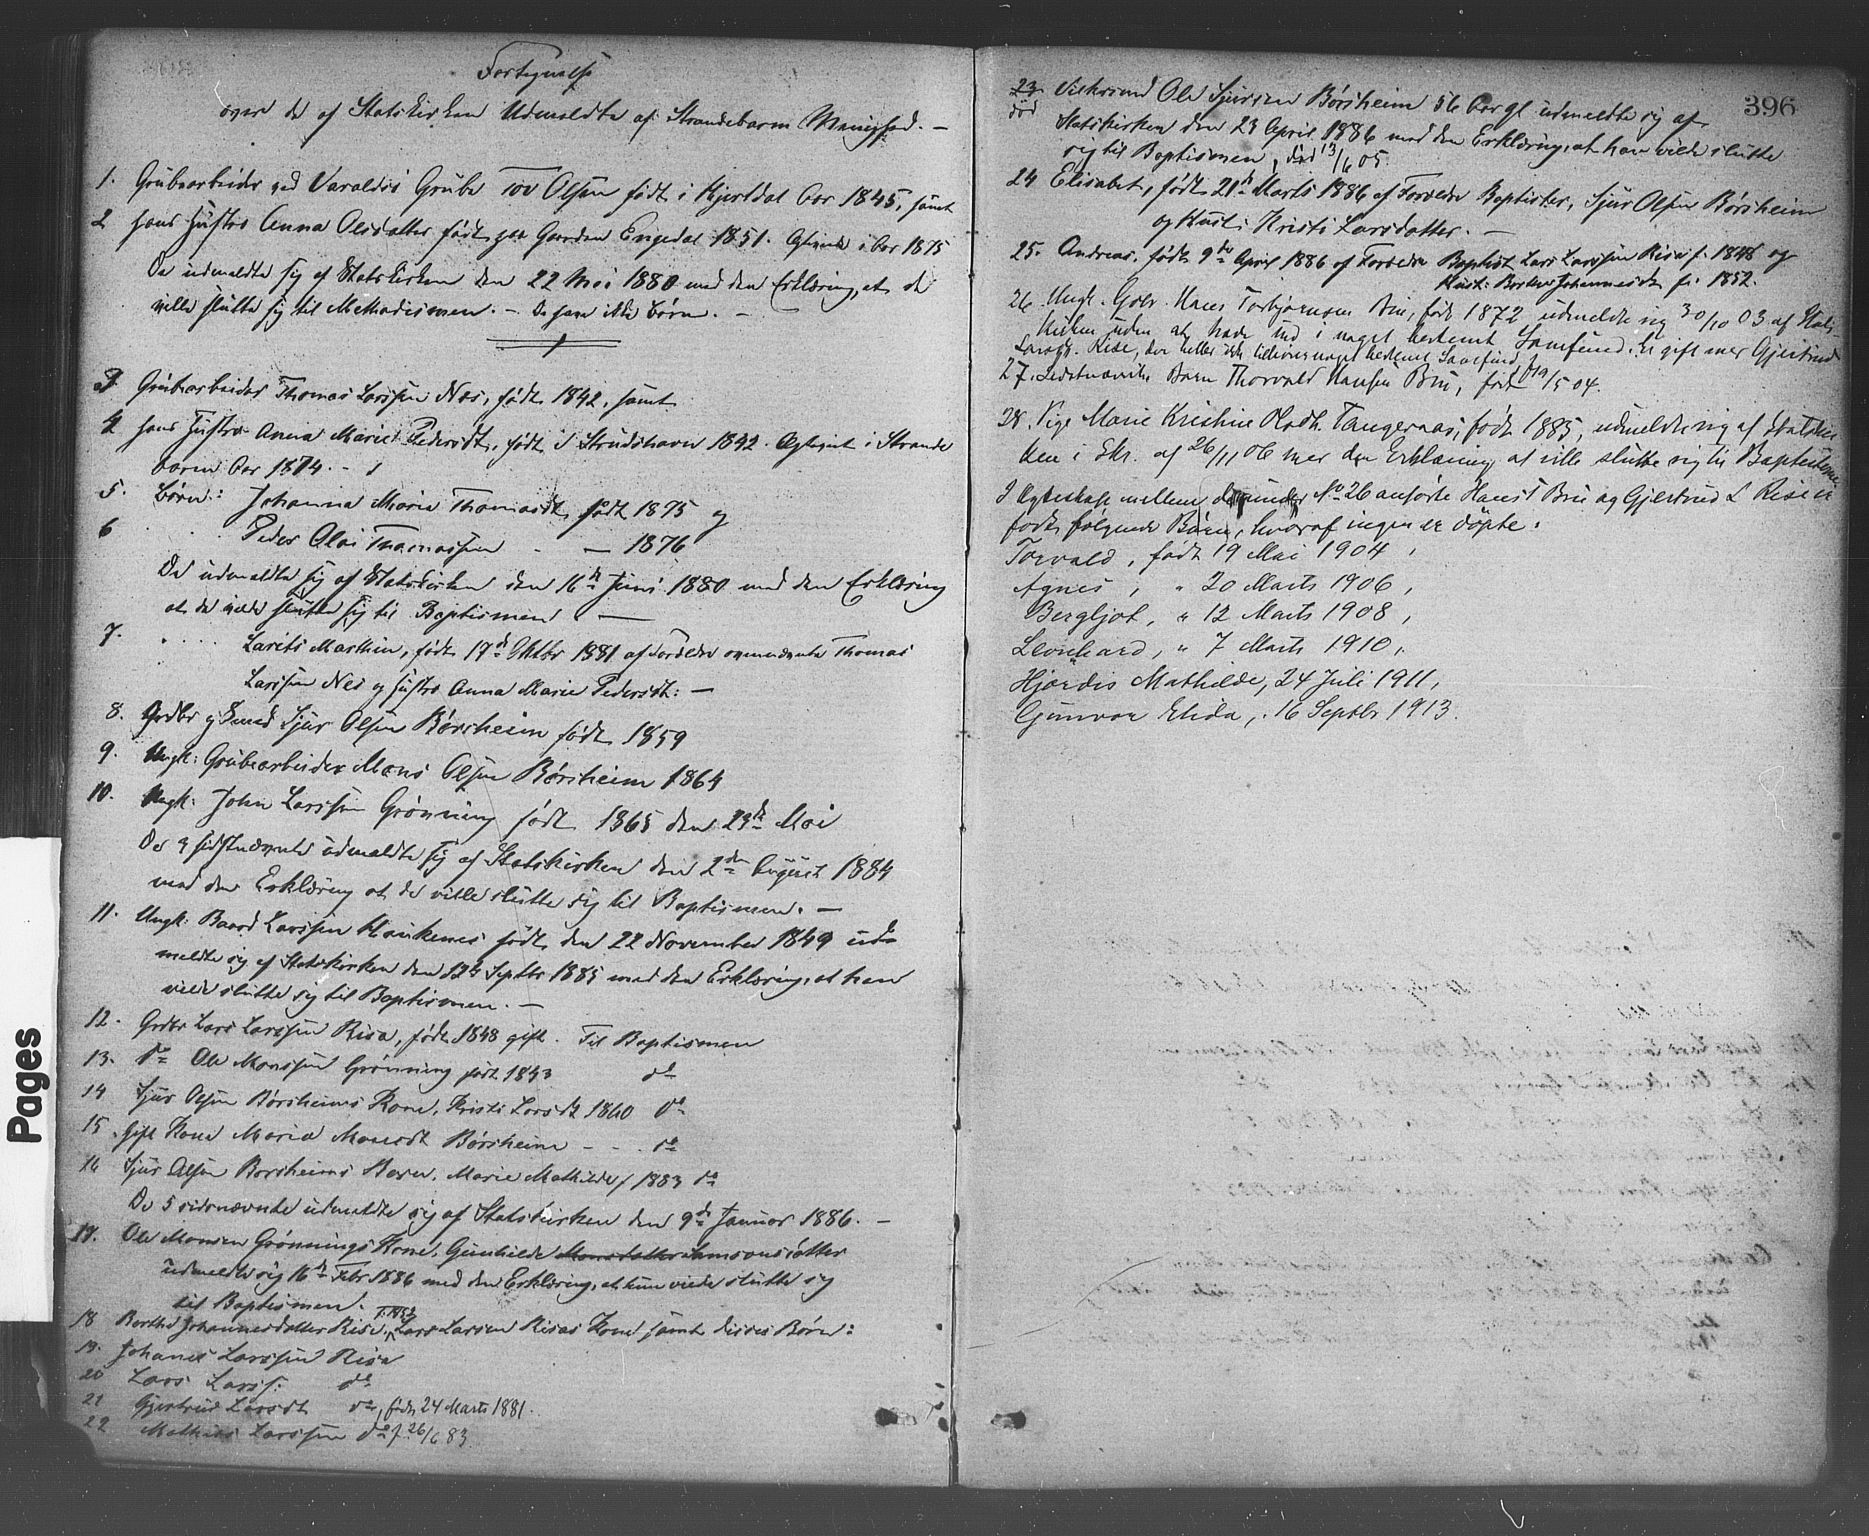 Fortegnelse
over de af Statskirken Udmeldte af Strandebarm Menighed. —
1. Grubearbeider ved Varaldsö Grube Tov Olsen født i Hjertdal Aar 1845, samt
2 hans Hustru Anna Olsdatter født paa Gaarden Engedal 1851. Egteviet i Aar 1875
De udmeldte sig af Statskirken den 22 Mai 1880 med den Erklæring, at de
ville slutte sig til Methodismen. — De have ikke Børn. —
3. Grubearbeider Thomas Larssen Nes, født 1842, samt
4 hans Hustru Anna Marie Pedersdt, født i 1842. Egteviet i Strande
barm Aar 1874. —
5. Børn: Johanna Marie Thomasdt, født 1875 og
6 Peder Olai Thomassen — 1876
De udmeldte sig af Statskirken den 16de Juni 1880 med den Erklæring
at de vilde slutte sig til Baptismen. —
7. Laurits Marthin, født 17de Oktbr 1881 af Forældre ovennævnte Thomas
Larssen Nes og Hustru Anna Marie Pedersdt: —
8. Grdbr og Smed Sjur Olsen Børsheim født 1859
9. Ungk: Grubearbeider Mons Olsen Børsheim 1864
10. Ungk: John Larssen Grønning født 1865 den 23de Mai
De 3 sidstnævnte udmeldte sig af Statskirken den 2den August 1884
med den Erklæring at de ville slutte sig til Baptismen. —
11. Ungk: Baard Larssen Haukenes født den 22 November 1849 ud-
meldte sig af Statskirken den 12te Septbr 1885 med den Erklæring, at han
vilde slutte sig til Baptismen. —
12. Grdbr Lars Larssen Risa, født 1848 gift. Til Baptismen
13. do Ole Monssen Grønning født 1843 do
14 Sjur Olsen Børsheims Kone, Kristi Larsdt 1860 do
15. Gift Kone Maria Monsdt Børsheim - - - do
16 Sjur Olsen Børsheims Barn, Marie Mathilde f 1883 do
De 5 sidsnævnte udmeldte sig af Statskirken den 9de Januar 1886. —
17. Ole Monsen Grønnings Kone, Gunhilde Monsdatter Samsonsdatter
udmeldte sig 16de Febr 1886 med den Erklæring, at hun vilde slutte sig
til Baptismen.
18 Berthe Johannesdatter Risa, f. 1852 Lars Larsen Risas Kone samt disses Børn:
19. Johanes Larssen Risa
20 Lars Larss: do
21 Gjertrud Larsdt do, født 24 Marts 1881.
22 Mathias Larssen do f. 26/6 83
396
23. Ole Sjursen Børsheim 56 Aar gl. udmeldte sig af
død Statskirken den 23 April 1886 med den Erklæring, at han vilde slutte
sig til Baptismen, død 13/6 05.
24 Elisabet, født 21de Marts 1886 af Forældre Baptister, Sjur Olsen Børsheim
og Hust: Kristi Larsdatter. —
25. Andreas, født 9de April 1886 af Forældre Baptist Lars Larssen Risa f. 1848 og
Hust: Berthe Johannesdt f. 1852.
26. Ungk. Gbr. Hans Torbjørnsen Bru, født 1872 udmeldte sig 30/10 03 af Stats-
kirken uden at træde ind i noget bestemt Samfund. Er gift med Gjertrud
Larsdt. Rise, der heller ikke tilhører noget bestemt Samfund.
27. Sidstnævntes Barn Thorvald Hansen Bru, født 19/5 04.
28. Pige Marie Kristine Olsdt. Tangeraas, født 1885, udmeldte sig af Statskir
ken i Skr. af 26/11 06 med den Erklæring at ville slutte sig til Baptisterne.
I Egteskab mellem de under No 26 anførte Hans T Bru og Gjertrud L Rise er
født følgende Børn, hvoraf ingen er döpte:
Torvald, født 19 Mai 1904,
Agnes, " 20 Marts 1906,
Bergljot, " 12 Marts 1908,
Leonhard, " 7 Marts 1910,
Hjördis Mathilde, 24 Juli 1911,
Gunvor Elida, 16 Septbr 1913.
Pages